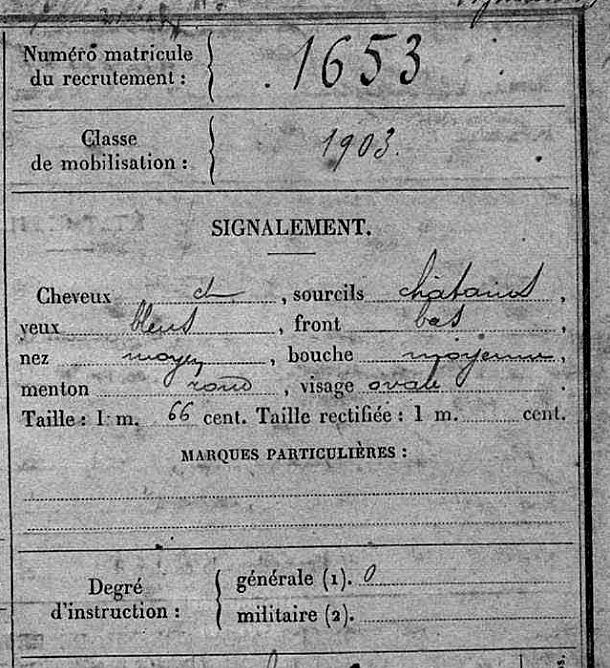 Numéro matricule
du recrutement : 1653
Classe
de mobilisation : 1903.
SIGNALEMENT.
Cheveux ch, sourcils châtains,
yeux bleus, front bas,
nez moyen, bouche moyenne,
menton rond, visage ovale.
Taille : 1 m. 66 cent. Taille rectifiée : 1 m. cent.
MARQUES PARTICULIÈRES :
Degré
d'instruction :
générale (1). 0
militaire (2).